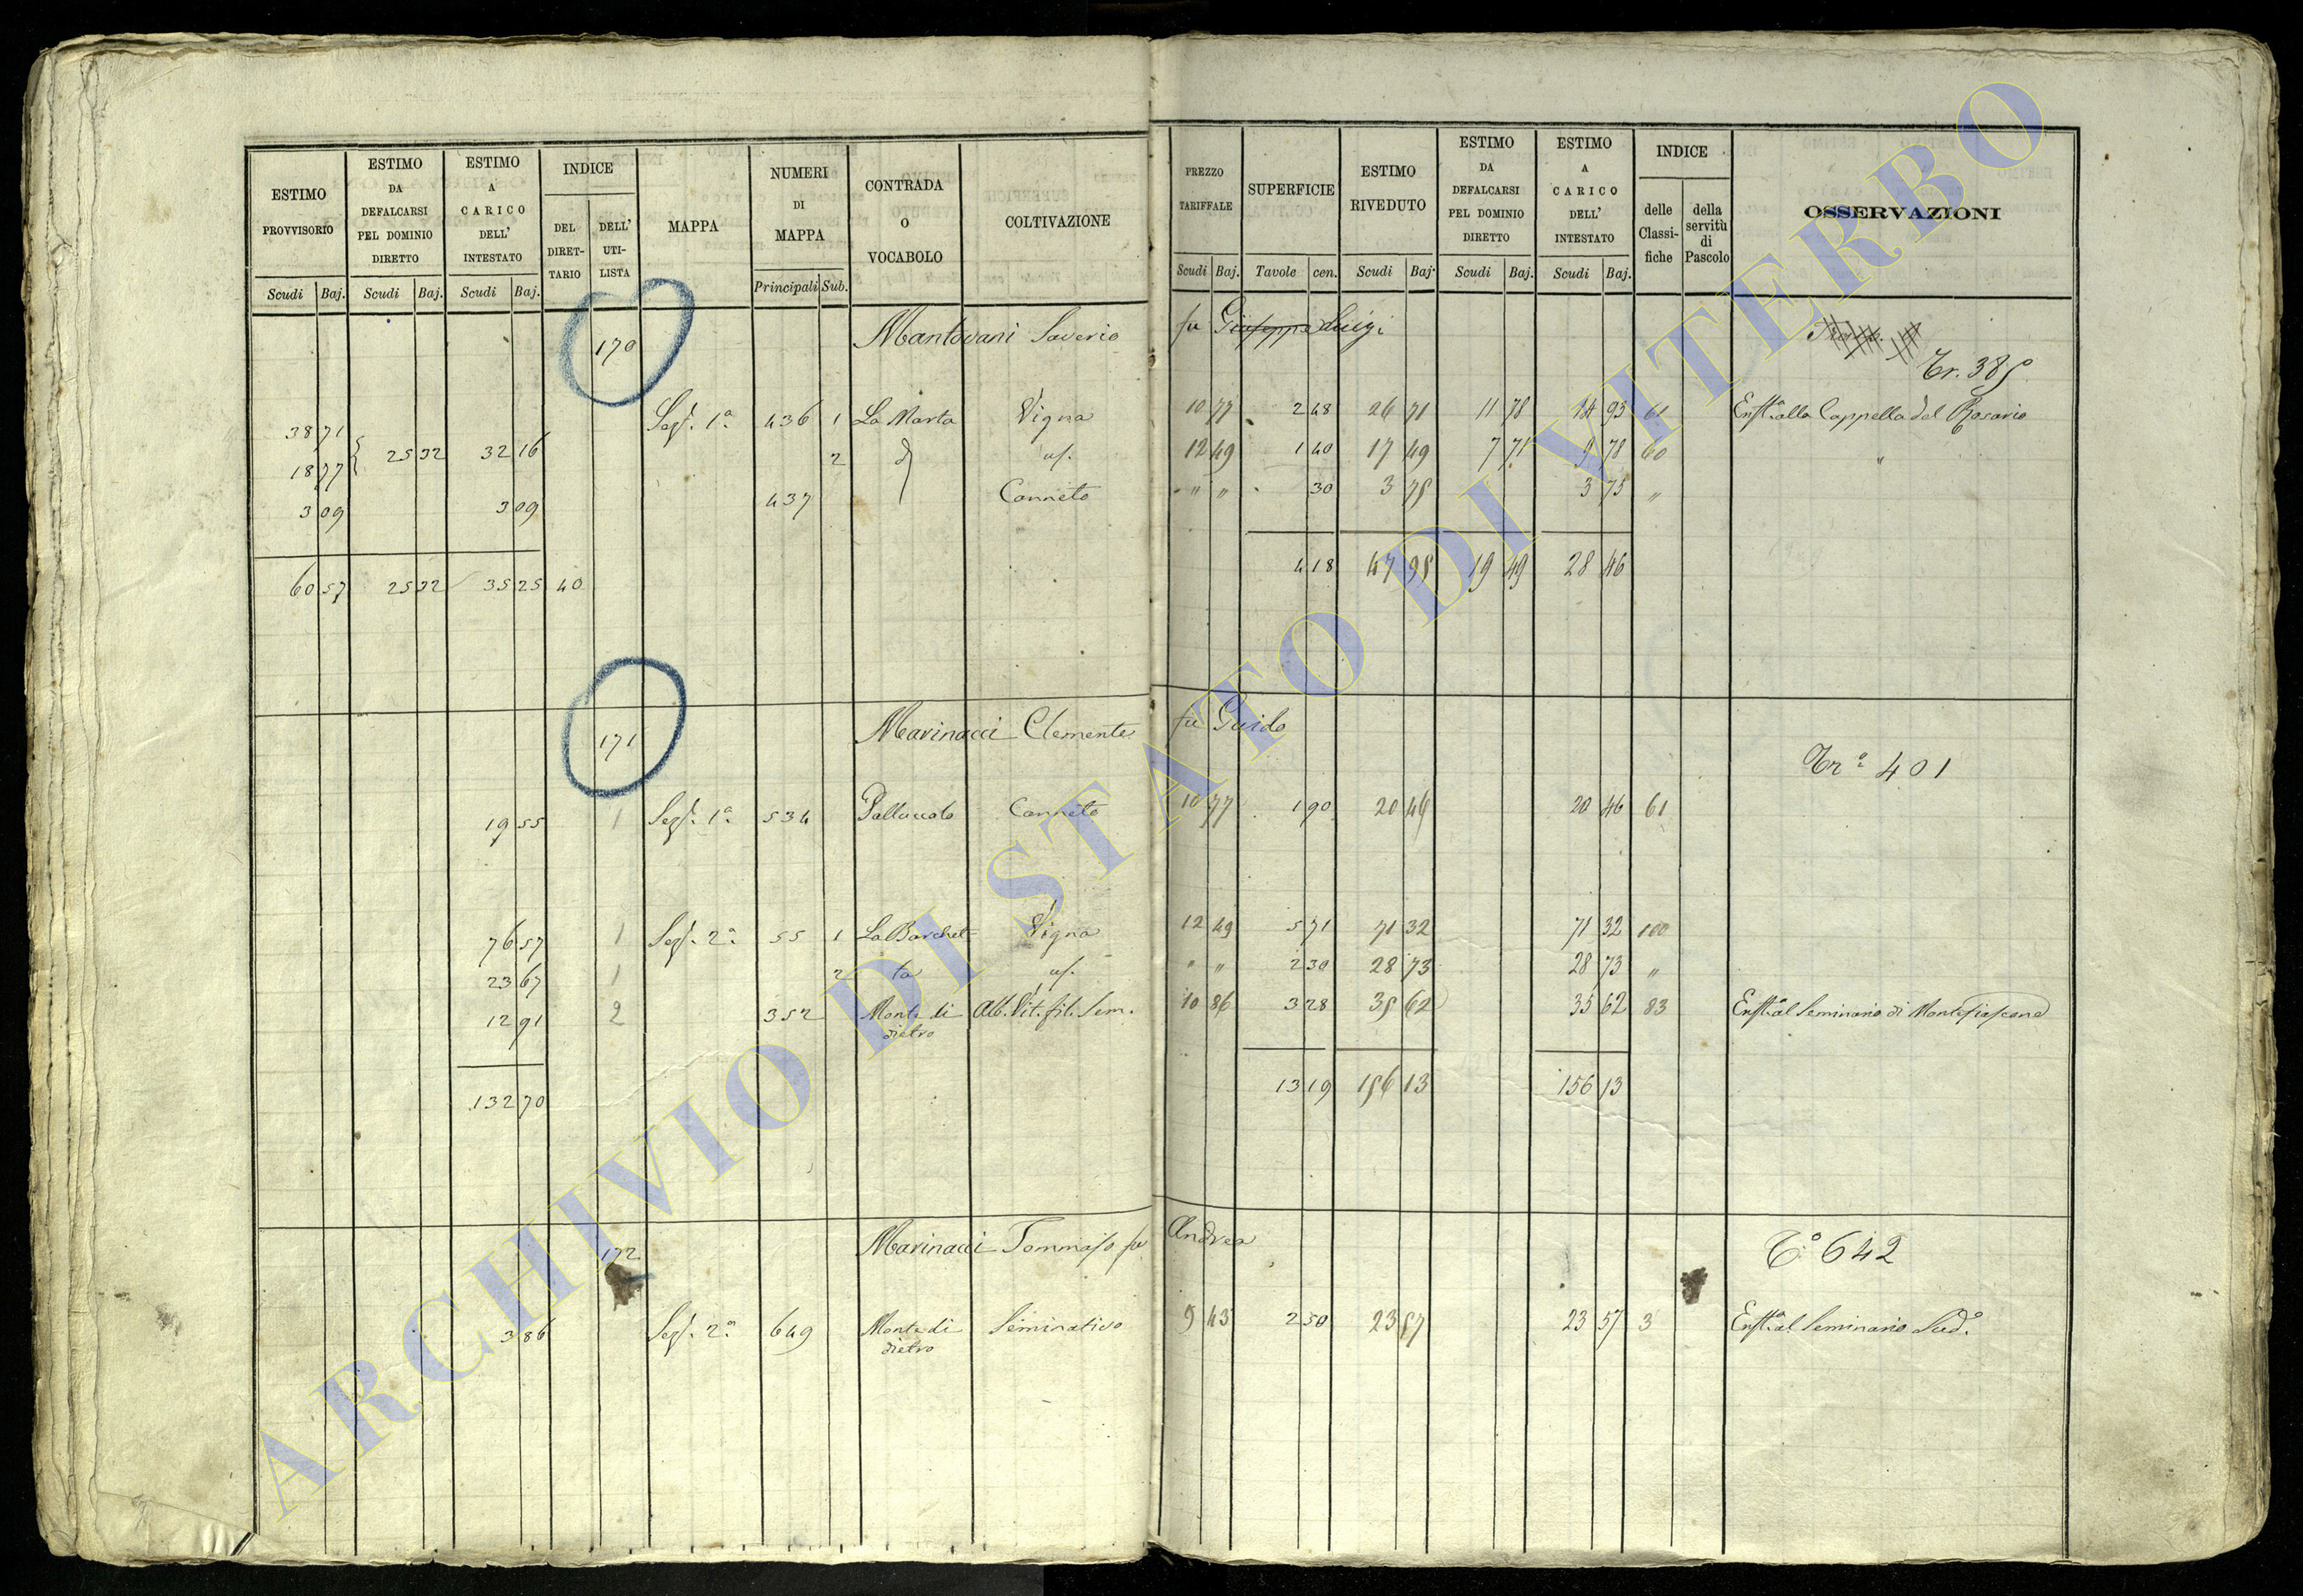 ESTIMO PROVVISORIO Scudi Baj. ESTIMO DA DEFALCARSI PEL DOMINIO DIRETTO Scudi Baj. ESTIMO A CARICO DELL' INTESTATO Scudi Baj. INDICE DEL DIRET-TARIO DELL' UTI-LISTA MAPPA NUMERI DI MAPPA Principali Sub. CONTRADA O VOCABOLO COLTIVAZIONE
PREZZO TARIFFALE Scudi Baj. SUPERFICIE Tavole cen. ESTIMO RIVEDUTO Scudi Baj. ESTIMO DA DEFALCARSI PEL DOMINIO DIRETTO Scudi Baj. ESTIMO A CARICO DELL' INTESTATO Scudi Baj. INDICE delle Classi-fiche della servitù di Pascolo OSSERVAZIONI
170 Mantovani Saverio fu Giuseppe Luigi
Tr. 385
38 71 Sez. 1a 436 1 La Marta Vigna 10 77 2 48 26 71 11 78 14 93 61 Enft. alla Cappella del Rosario
18 77 25 32 32 16 2 d uf. 12 49 1 40 17 49 7 71 9 78 60 "
3 09 3 09 437 Canneto " " 30 3 75 3 75 "
4 18 47 95 19 49 28 46
60 57 25 32 35 25 40
171 Marinacci Clemente fu Guido
Tr.a 401
19 55 1 Sez. 1a 534 Palluccolo Canneto 10 77 1 90 20 46 20 46 61
76 57 1 Sez. 2a 55 1 La Barchet= Vigna 12 49 5 71 71 32 71 32 100
23 67 1 2 ta uf. " " 2 30 28 73 28 73 "
12 91 2 352 Monte di dietro Alb. Vit. fil. Sem. 10 86 3 28 35 62 35 62 83 Enft. al Seminario di Montefiascone
132 70 13 19 156 13 156 13
172 Marinacci Tommaso fu Andrea
T.o 642
3 86 Sez. 2a 649 Monte di dietro Seminativo 9 43 2 50 23 57 23 57 3 Enft. al Seminario Sud.o
ARCHIVIO DI STATO DI VITERBO